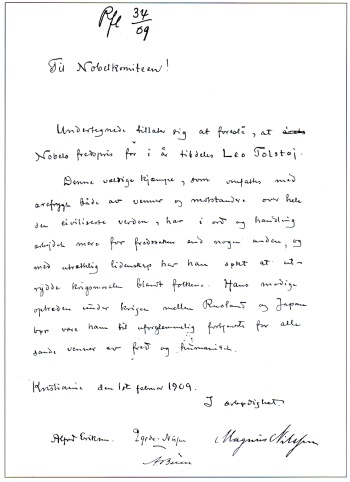 Pfl 34/09
Til Nobelkomiteen!
Undertegnede tillater sig at foreslå, at
Nobels fredspris for i år tildeles Leo Tolstoj.
Denne vældige kjæmpe, som omfattes med
ærefrygt både av venner og motstandre over hele
den civiliserte verden, har i ord og handling
arbejdet mere for fredssaken end nogen anden, og
med utrættelig lidenskap har han søkt at ut-
rydde krigsmoralen blandt folkene. Hans modige
optræden under krigen mellem Rusland og Japan
bør være ham til uforglemmelig fortjeneste for alle
sande venner av fred og humanisme.
Kristiania den 1st februar 1909.
I ærbødighet
Alfred Eriksen. Egede-Nissen Magnus Nilssen